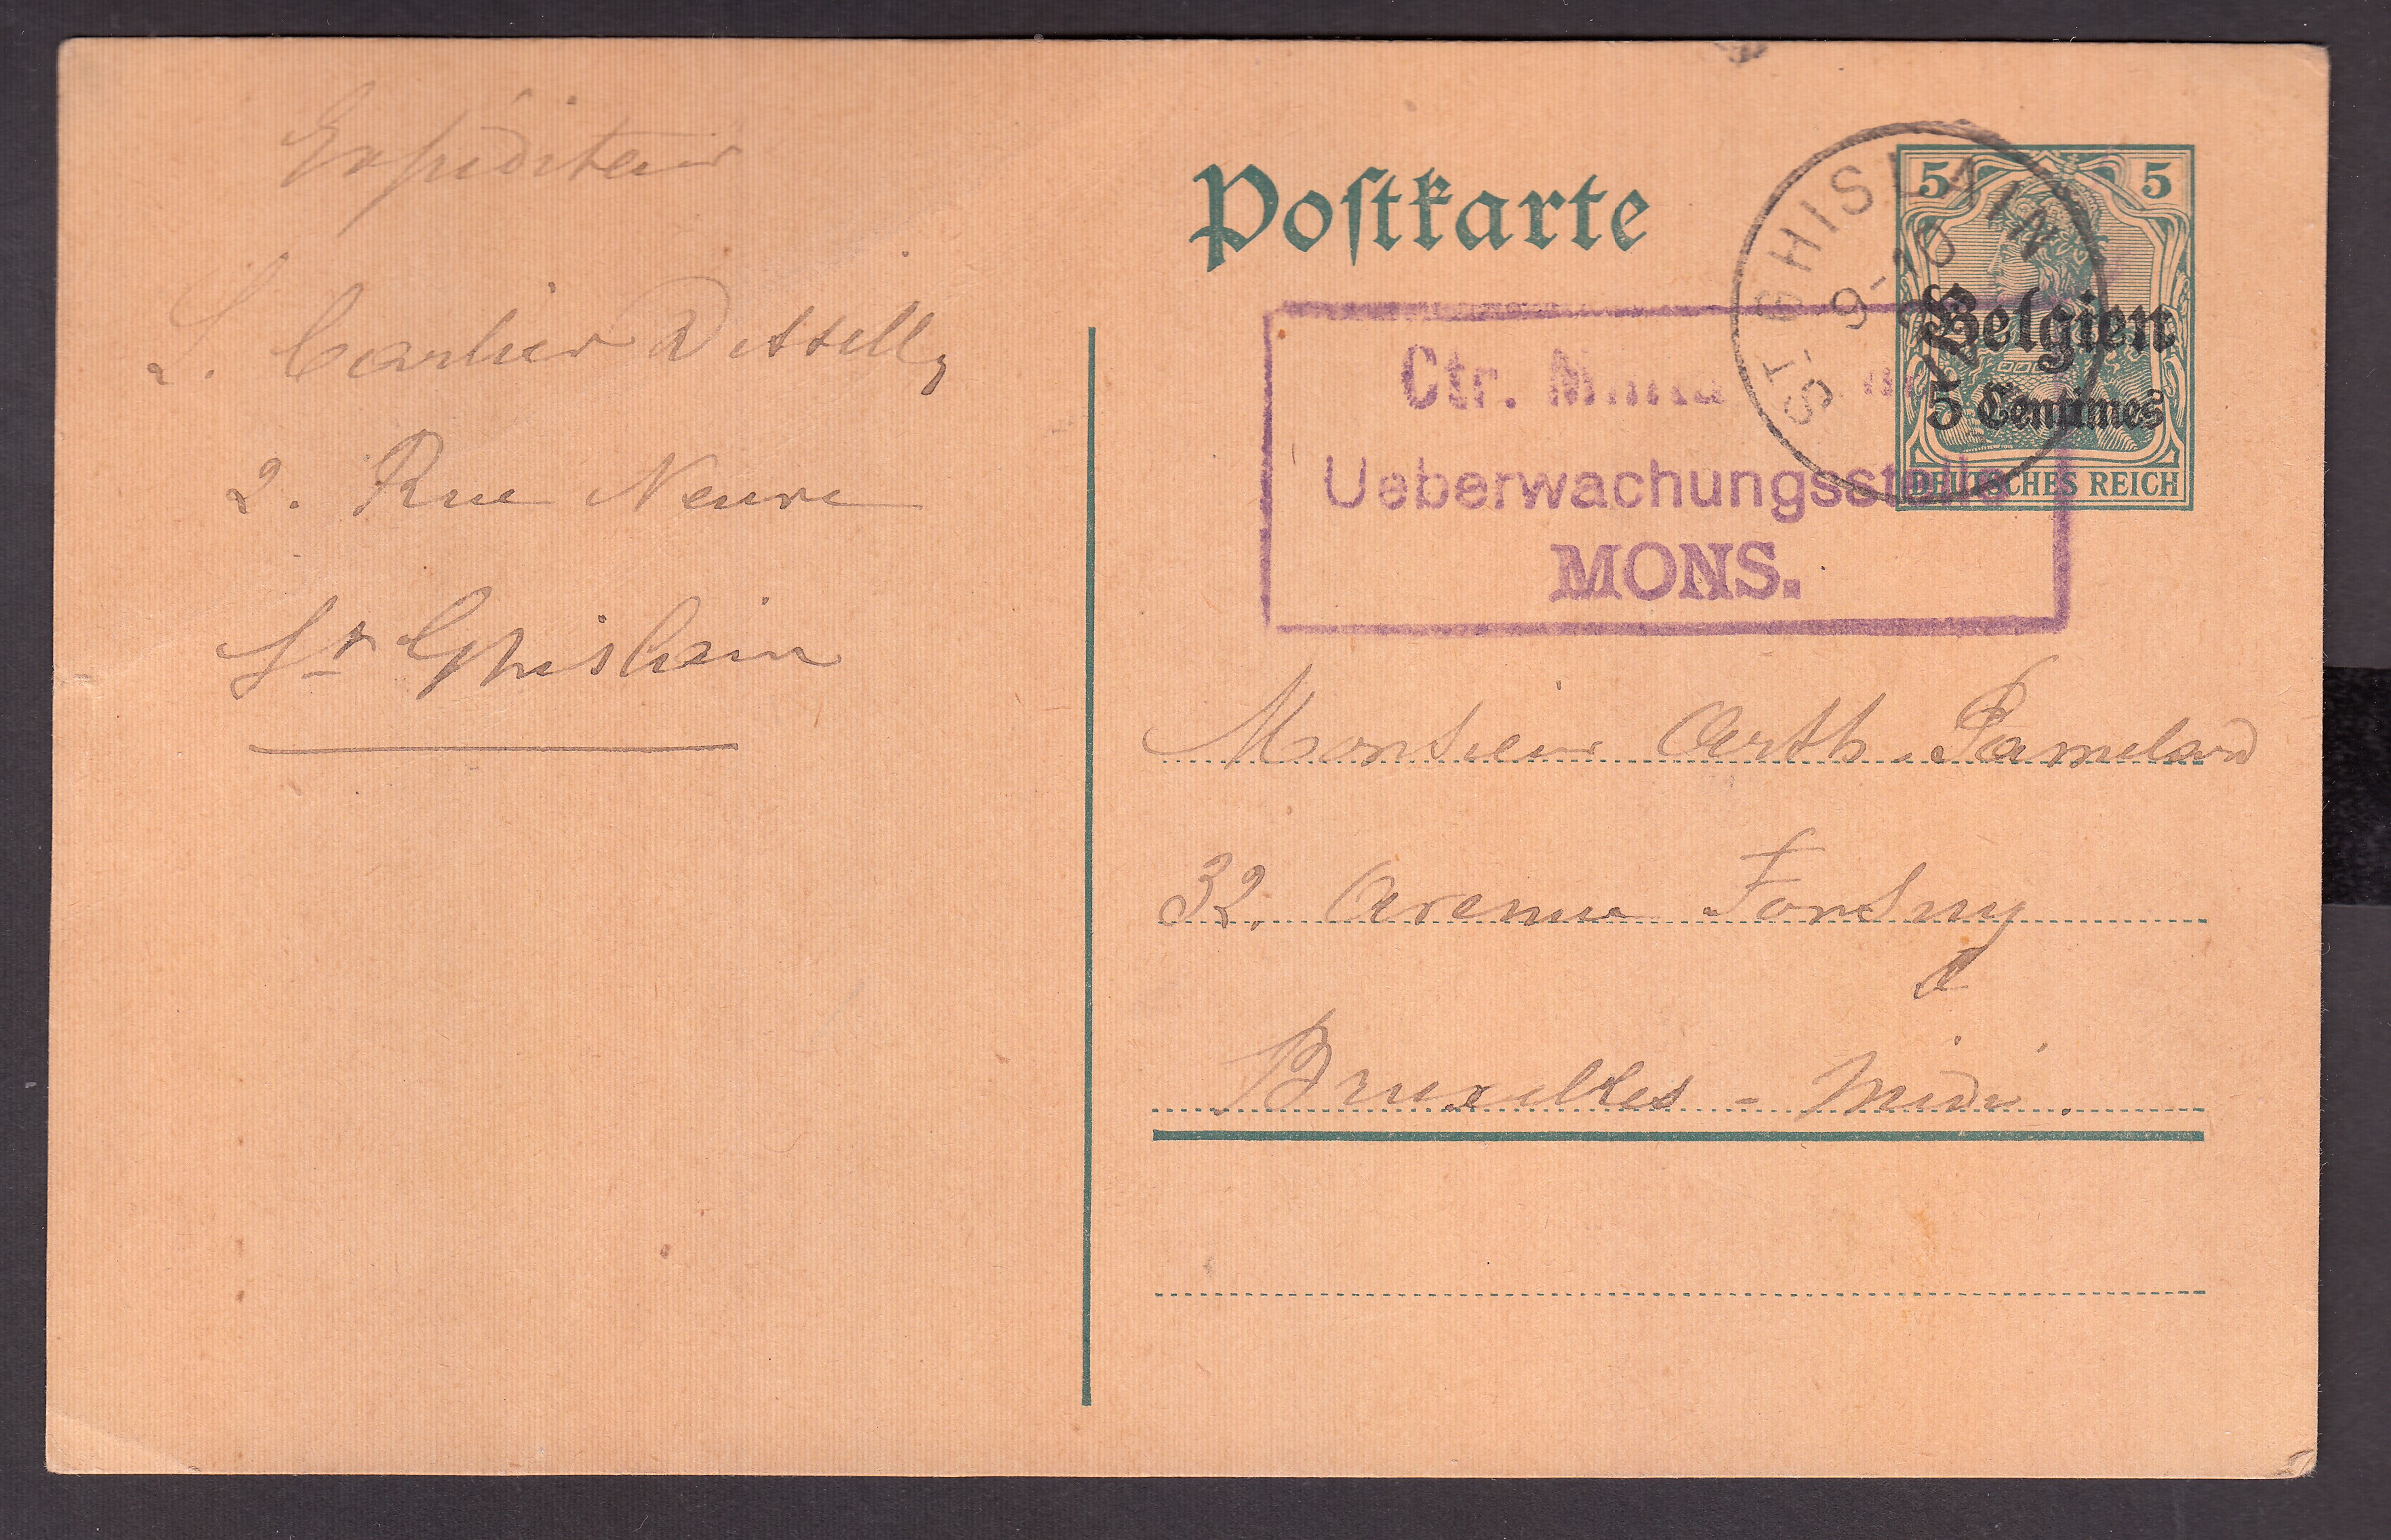 Expéditeur
L. Carlier Dessilly
2. Rue Neuve
St Ghislain
Postkarte
5 5
Belgien
5 Centimes
DEUTSCHES REICH
ST GHISLAIN
9-10
Ctr.
Ueberwachungsstelle
MONS.
Monsieur Arth. Pamelard
32. Avenue Fonsny
Bruxelles - Midi.